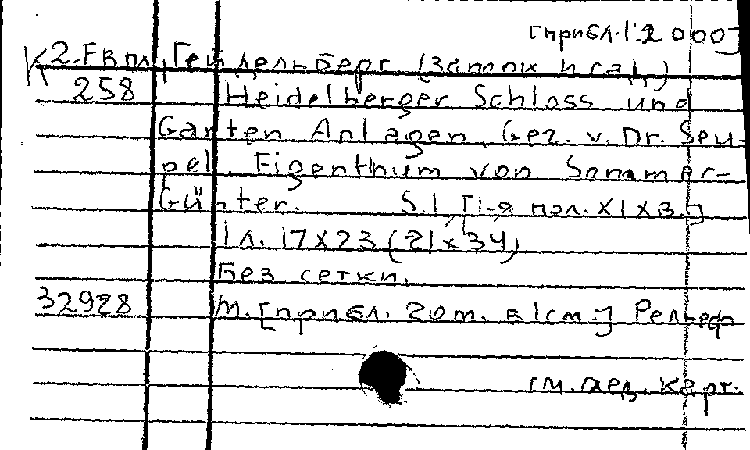 [прибл.1:2000]
К 2.Евп, Гейдельберг (замок и сад)
258 Heidelberger Schloss und
Garten Anlagen, Gez. v. Dr. Seu-
pel. Eigenthum von Sommer-
Günter. S.l. [1-я пол. XIX в.]
1 л. 17x23 (21x34)
Без сетки.
32928 М. [прибл. 20 m. в 1 см.] Рельеф
см. ред. карт.